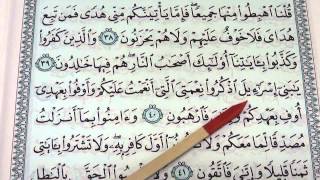 قُلْنَا ٱهْبِطُوا۟ مِنْهَا جَمِيعًا ۖ فَإِمَّا يَأْتِيَنَّكُم مِّنِّى هُدًى فَمَن تَبِعَ
هُدَاىَ فَلَا خَوْفٌ عَلَيْهِمْ وَلَا هُمْ يَحْزَنُونَ ٣٨ وَٱلَّذِينَ كَفَرُوا۟
وَكَذَّبُوا۟ بِـَٔايَـٰتِنَآ أُو۟لَـٰٓئِكَ أَصْحَـٰبُ ٱلنَّارِ ۖ هُمْ فِيهَا خَـٰلِدُونَ ٣٩
يَـٰبَنِىٓ إِسْرَٰٓءِيلَ ٱذْكُرُوا۟ نِعْمَتِىَ ٱلَّتِىٓ أَنْعَمْتُ عَلَيْكُمْ وَأَوْفُوا۟ بِعَهْدِىٓ
أُوفِ بِعَهْدِكُمْ وَإِيَّـٰىَ فَٱرْهَبُونِ ٤٠ وَءَامِنُوا۟ بِمَآ أَنزَلْتُ
مُصَدِّقًا لِّمَا مَعَكُمْ وَلَا أَوَّلَ كَافِرٍۭ بِهِۦ ۖ وَلَا تَشْتَرُوا۟ بِـَٔايَـٰتِى
ثَمَنًا قَلِيلًا وَإِيَّـٰىَ فَٱتَّقُونِ ٤١ وَلَا ٱلْحَقَّ بِٱلْبَـٰطِلِ